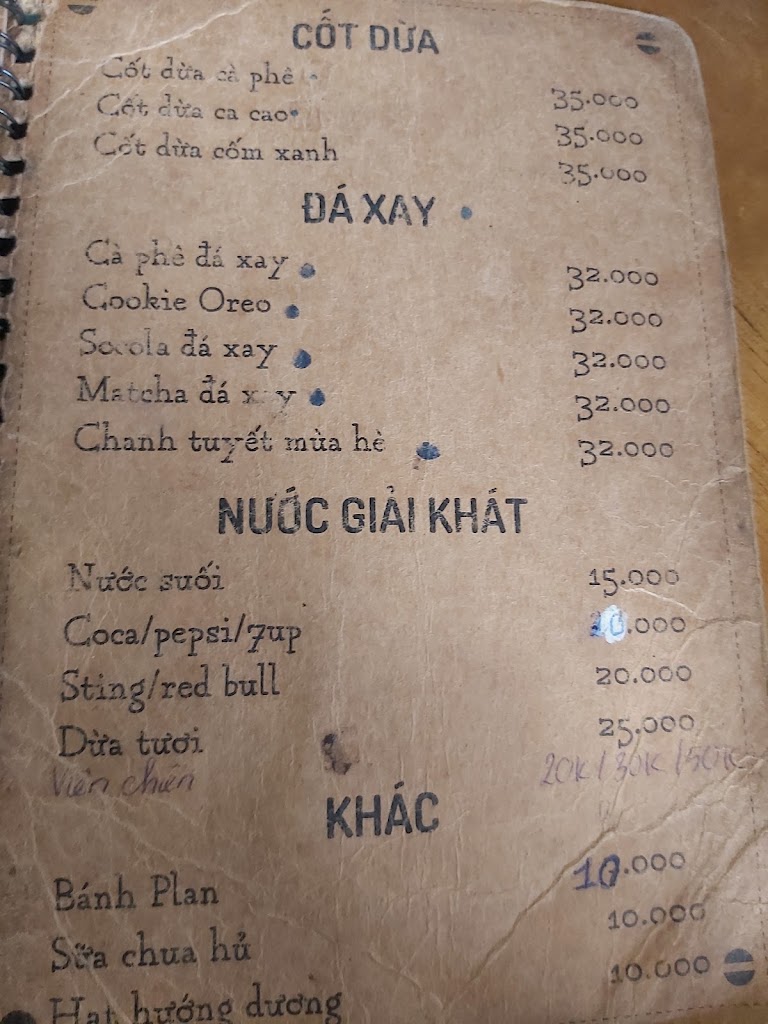 CỐT DỪA
Cốt dừa cà phê 35.000
Cốt dừa ca cao 35.000
Cốt dừa cốm xanh 35.000
ĐÁ XAY
Cà phê đá xay 32.000
Cookie Oreo 32.000
Socola đá xay 32.000
Matcha đá xay 32.000
Chanh tuyết mùa hè 32.000
NƯỚC GIẢI KHÁT
Nước suối 15.000
Coca/pepsi/7up 20.000
Sting/red bull 20.000
Dừa tươi 25.000
Viên chiên 20K/30K/50K
KHÁC
Bánh Plan 10.000
Sữa chua hủ 10.000
Hạt hướng dương 10.000